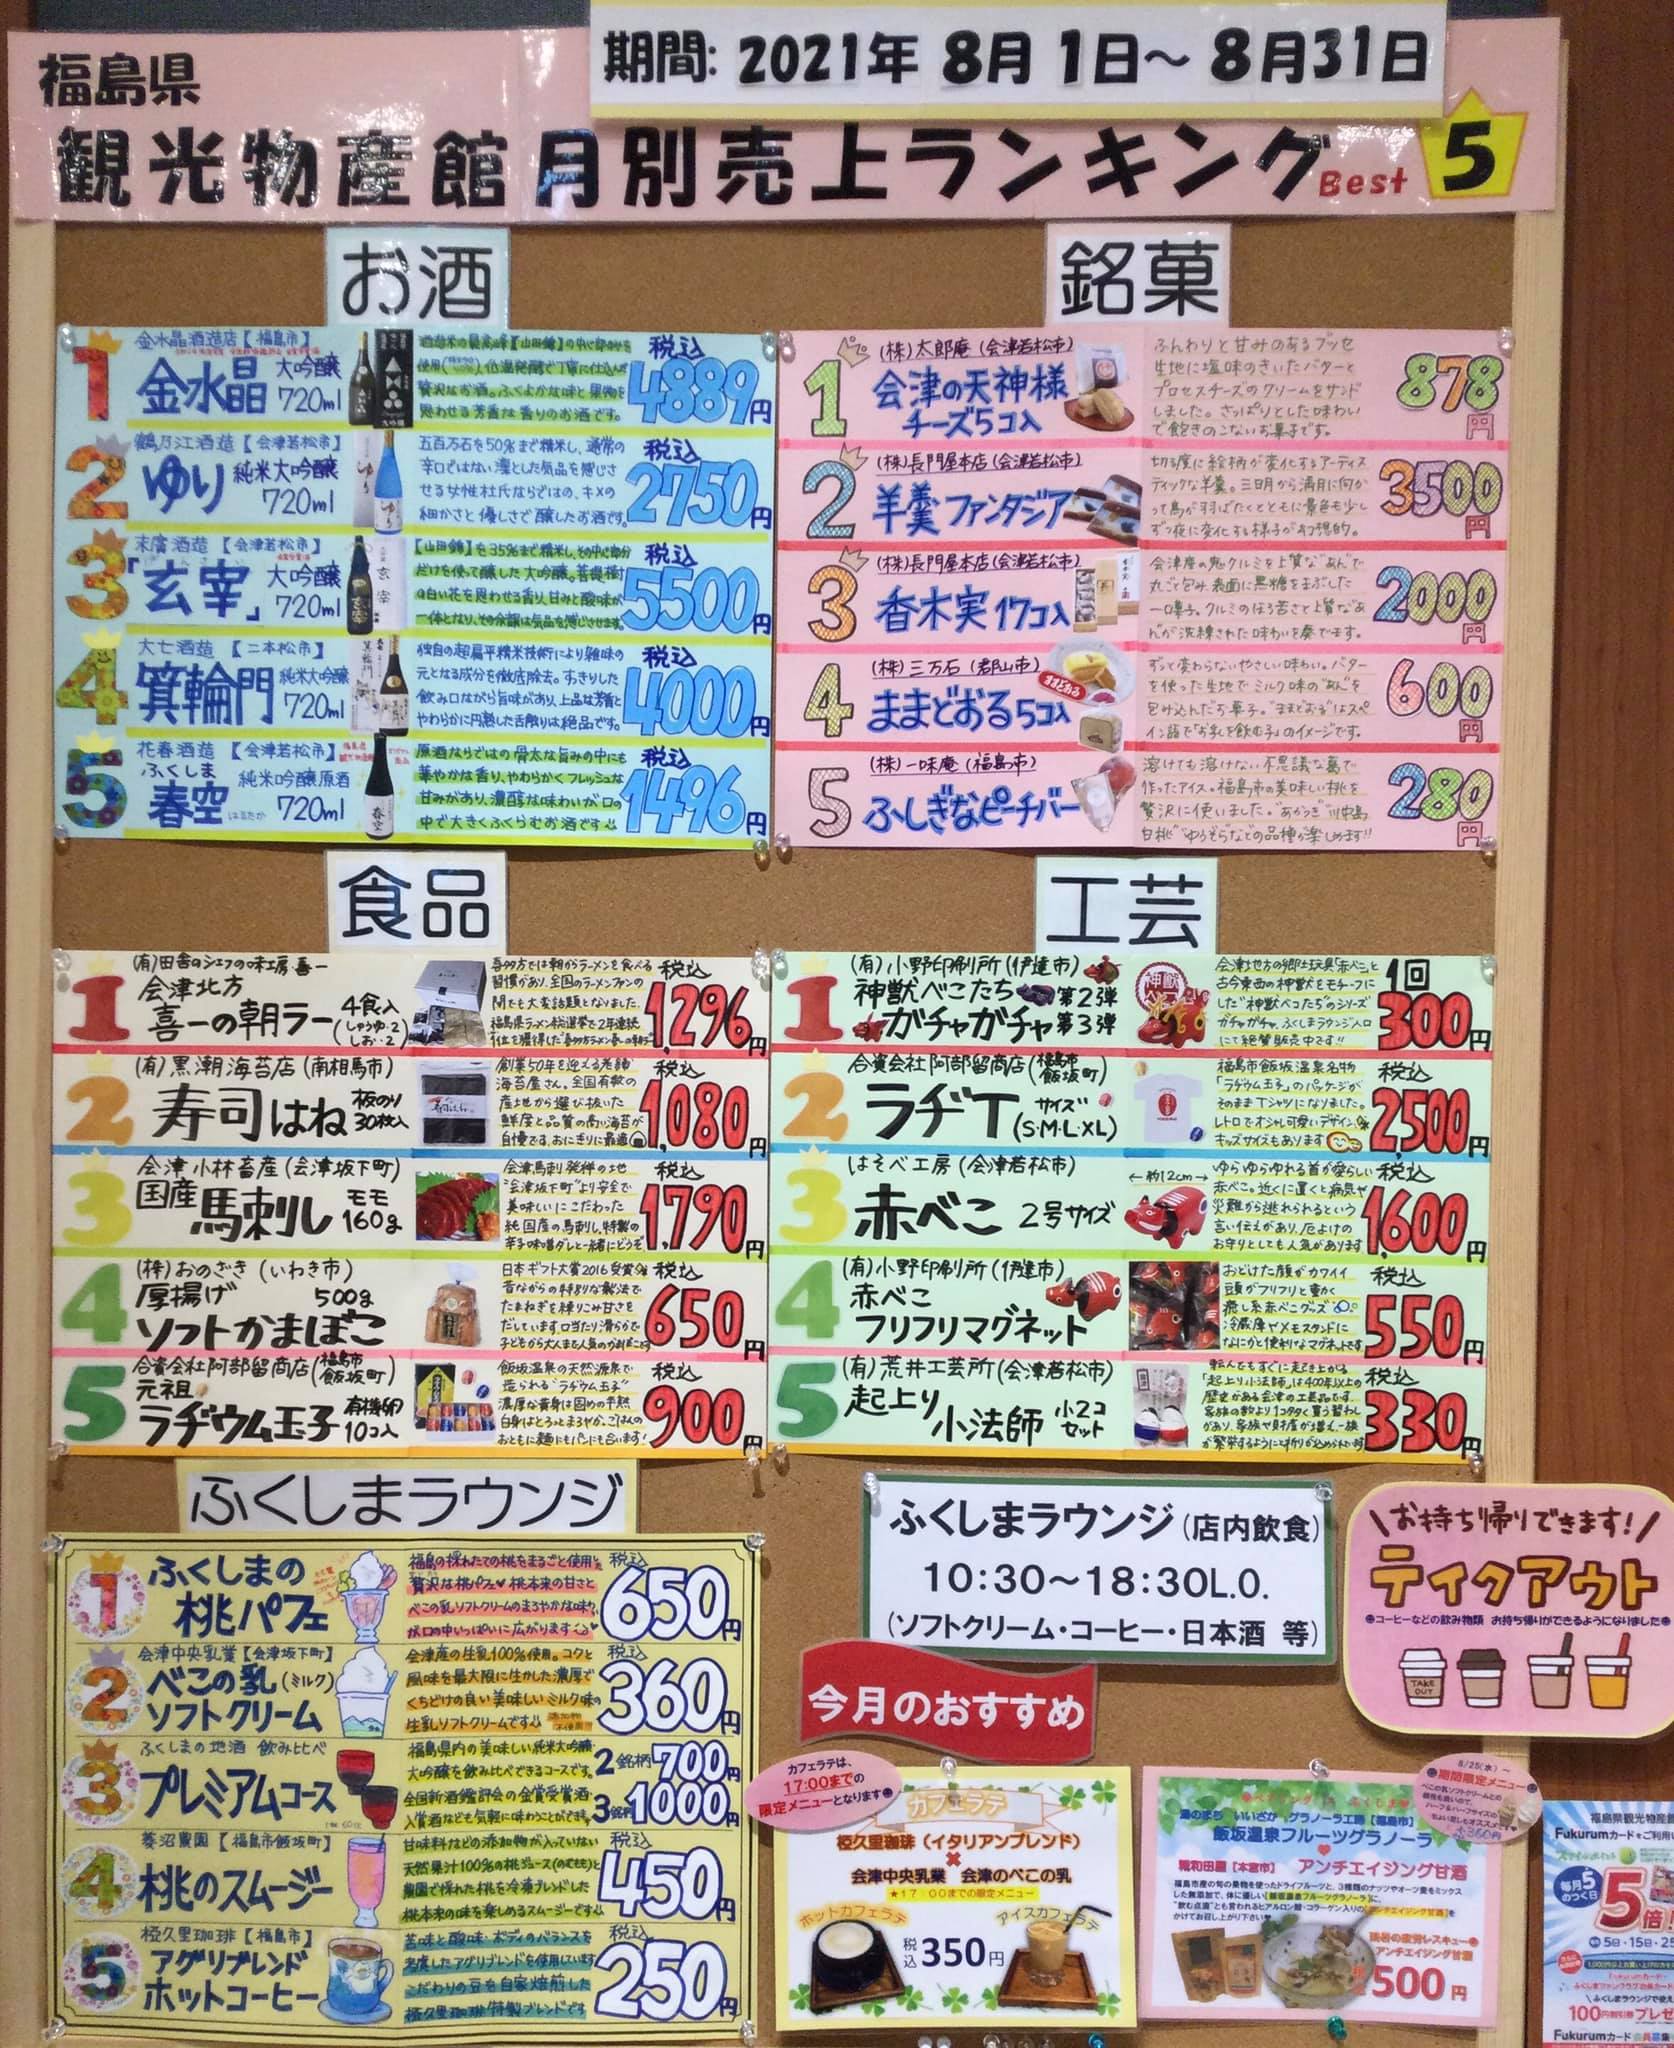 期間: 2021年 8月 1日～ 8月31日
福島県
観光物産館 月別売上ランキング Best 5
お酒
1
金水晶酒造店【福島市】
金水晶 大吟醸
720ml
贅沢なお酒。ふくよかな味と果物を
思わせる芳香な香りのお酒です。
税込
4889円
2
鶴乃江酒造【会津若松市】
ゆり 純米大吟醸
720ml
五百万石を50%まで精米し、通常の
辛口ではない凛とした気品を感じさ
せる女性杜氏ならではの、キメの
細かさと優しさで醸したお酒です。
税込
2750円
3
末廣酒造【会津若松市】
「玄宰」 大吟醸
720ml
【山田錦】を35%まで精米し、その中心部分
だけを使って醸した大吟醸。菩提樹
の白い花を思わせる香り、甘みと酸味が
一体となり、その余韻は気品を感じさせます。
税込
5500円
4
大七酒造【二本松市】
箕輪門 純米大吟醸
720ml
独自の超扁平精米技術により雑味の
元となる成分を徹底除去。すっきりした
飲み口ながら旨味があり、上品な芳香と
やわらかに円熟した舌触りは絶品です。
税込
4000円
5
花春酒造【会津若松市】
ふくしま
春空 はるたか
純米吟醸原酒
720ml
原酒ならではの骨太な旨みの中にも
華やかな香り、やわらかくフレッシュな
甘みがあり、濃醇な味わいが口の
中で大きくふくらむお酒です
税込
1496円
銘菓
1
(株)太郎庵(会津若松市)
会津の天神様
チーズ5コ入
ふんわりと甘みのあるブッセ
生地に塩味のきいたバターと
プロセスチーズのクリームをサンド
しました。さっぱりとした味わい
で飽きのこないお菓子です。
878円
2
(株)長門屋本店(会津若松市)
羊羹ファンタジア
切る度に絵柄が変化するアーティス
ティックな羊羹。三日月から満月に向か
って鳥が羽ばたくとともに景色も少し
ずつ夜に変化する様子が幻想的。
3500円
3
(株)長門屋本店(会津若松市)
香木実 17コ入
会津産の鬼クルミを上質な"あん"で
丸ごと包み表面に黒糖をまぶした
一口菓子。クルミのほろ苦さと上質な"あ
ん"が洗練された味わいを奏でます。
2000円
4
(株)三万石(郡山市)
ままどおる5コ入
ずっと変わらないやさしい味わい。バター
を使った生地でミルク味の"あん"を
包み込んだお菓子。"ままどおる"はスペ
イン語で「お乳を飲む子」のイメージです。
600円
5
(株)一味庵(福島市)
ふしぎなピーチバー
溶けても溶けない不思議な葛で
作ったアイス。福島市の美味しい桃を
贅沢に使いました。"あかつき""川中島
白桃""ゆうぞら"などの品種が楽しめます!!
280円
食品
1
(有)田舎のシェフの味工房・喜一
会津北方
喜一の朝ラー 4食入
(しょうゆ・2
しお・・2)
喜多方では朝からラーメンを食べる
習慣があり、全国のラーメンファンの
間でも大変話題となりました。
福島県ラーメン総選挙で2年連続
税込
1,296円
2
(有)黒潮海苔店(南相馬市)
寿司はね 板のり
30枚入
創業50年を迎える老舗
海苔屋さん。全国有数の
産地から選び抜いた
鮮度と品質の高い海苔が
自慢です。おにぎりに最適
税込
1,080円
3
会津小林畜産(会津坂下町)
国産 馬刺し モモ
160g
会津馬刺し発祥の地
"会津坂下町"より安全で
美味しいにこだわった
純国産の馬刺し。特製の
辛子味噌ダレと一緒にどうぞ
税込
1,790円
4
(株)おのざき(いわき市)
厚揚げ 500g
ソフトかまぼこ
日本ギフト大賞2016受賞
昔ながらの特別な製法で
たまねぎを練りこみ甘さを
だしています。口当たり滑らかで
子どもから大人まで人気のかまぼこです
税込
650円
5
合資会社阿部留商店(福島市飯坂町)
元祖
ラヂウム玉子 有機卵
10コ入
飯坂温泉の天然源泉で
造られる"ラヂウム玉子"
濃厚な黄身は固めの半熟
白身はとろっとまろやか。ごはんの
おともに麺にもパンにも合います!
税込
900円
工芸
1
(有)小野印刷所(伊達市)
神獣べこたち 第2弾
ガチャガチャ 第3弾
会津地方の郷土玩具「赤べこ」と
古今東西の神獣をモチーフに
した"神獣ベコたち"のシリズ
ガチャガチャ。ふくしまラウンジ入口
にて絶賛販売中です!!
1回
300円
2
合資会社阿部留商店(福島市飯坂町)
ラヂT サイズ
(S・M・L・XL)
福島市飯坂温泉名物
「ラヂウム玉子」のパッケージが
そのままTシャツになりました。
レトロでオシャレ可愛いデザイン
キッズサイズもあります
税込
2,500円
3
はそべ工房(会津若松市)
赤べこ 2号サイズ
←約12cm→
ゆらゆらゆれる首が愛らしい
赤べこ。近くに置くと病気や
災難から逃れられるという
言い伝えがあり、厄よけの
お守りとしても人気があります
税込
1,600円
4
(有)小野印刷所(伊達市)
赤べこ
フリフリマグネット
おどけた顔がカワイイ
頭がフリフリと動く
癒し系赤べこグッズ
冷蔵庫やメモスタンドに
なにかと便利なマグネットです
税込
550円
5
(有)荒井工芸所(会津若松市)
起上り
小法師 小2コ
セット
転んでもすぐに起き上がる
「起上り小法師」は400年以上の
歴史がある会津の工芸品です
家族の数より1コ多く買う習わし
があり、家族や財産が増え、一族
が繁栄するようにと祈りが込められています
税込
330円
ふくしまラウンジ
1
ふくしまの
桃パフェ
福島の採れたての桃をまるごと使用した
贅沢な桃パフェ♥桃本来の甘さと
べこの乳ソフトクリームのまろやかな味わい
が口の中いっぱいに広がります
税込
650円
2
会津中央乳業【会津坂下町】
べこの乳(ミルク)
ソフトクリーム
会津産の生乳100%使用。コクと
風味を最大限に生かした濃厚で
くちどけの良い美味しいミルク味の
生乳ソフトクリームです
税込
360円
3
ふくしまの地酒 飲み比べ
プレミアムコース
福島県内の美味しい純米大吟醸・
大吟醸を飲み比べできるコースです。
全国新酒鑑評会の金賞受賞酒
入賞酒なども気軽に味わうことができます。
2銘柄700円
3銘柄1000円
4
菱沼農園【福島市飯坂町】
桃のスムージー
甘味料などの添加物が入っていない
天然果汁100%の桃ジュース(のむもも)と
農園で採れた桃を冷凍ブレンドした
桃本来の味を楽しめるスムージーです
税込
450円
5
椏久里珈琲【福島市】
アグリブレンド
ホットコーヒー
苦味と酸味・ボディのバランスを
考慮したアグリブレンドを使用しています
こだわりの豆を自家焙煎した
椏久里珈琲特製ブレンドです
税込
250円
ふくしまラウンジ(店内飲食)
10:30～18:30L.O.
(ソフトクリーム・コーヒー・日本酒 等)
\お持ち帰りできます!/
テイクアウト
コーヒーなどの飲み物類 お持ち帰りができるようになりました
TAKE
OUT
今月のおすすめ
カフェラテは、
17:00までの
限定メニューとなります
カフェラテ
椏久里珈琲(イタリアンブレンド)
×
会津中央乳業 会津のべこの乳
★17:00までの限定メニュー
ホットカフェラテ
アイスカフェラテ
税込350円
8/25(水)～
期間限定メニュー
湯のまち いいざか グラノーラ工房【福島市】
飯坂温泉フルーツグラノーラ
糀和田屋【本宮市】 アンチエイジング甘酒
福島市産の旬の果物を使ったドライフルーツと、3種類のナッツやオーツ麦をミックス
した無添加で、体に優しい「飯坂温泉フルーツグラノーラ」に、
"飲む点滴"とも言われるヒアルロン酸・コラーゲン入りの「アンチエイジング甘酒」を
かけてお召し上がり下さい
アンチエイジング甘酒
500円
福島県観光物産館
Fukurumカードをご利用
毎月5
のつく日
5倍!
5日・15日・25
ふくしまラウンジで使え
100円割引券プレゼ
Fukurumカード会員募集